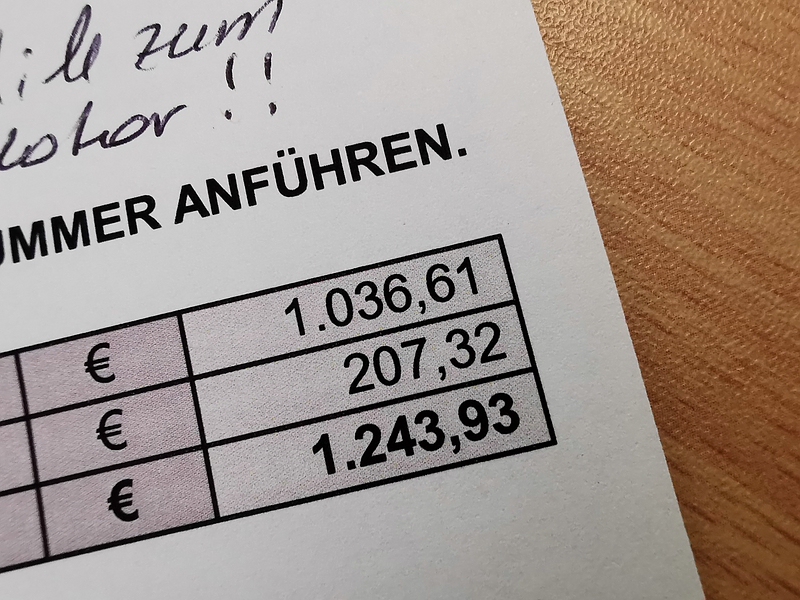 zum
!!
UMMER ANFÜHREN.
€ 1.036,61
€ 207,32
€ 1.243,93